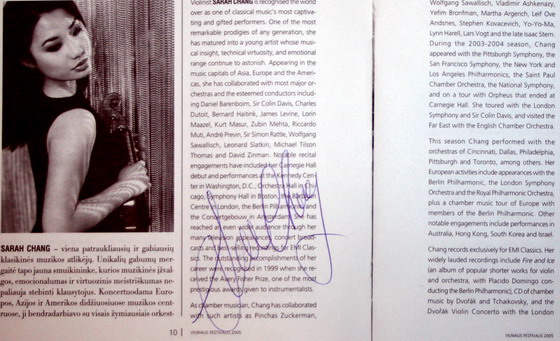 SARAH CHANG – viena patraukliausių ir gabiausių
klasikinės muzikos atlikėjų. Unikalių gabumų mer-
gaitė tapo jauna smuikininke, kurios muzikinės įžval-
gos, emocionalumas ir virtuozinis meistriškumas ne-
paliauja stebinti klausytojus. Koncertuodama Euro-
pos, Azijos ir Amerikos didžiuosiuose muzikos cent-
ruose, ji bendradarbiavo su visais žymiausiais orkest-
10
Violinist SARAH CHANG is recognised the world
over as one of classical music's most captiva-
ting and gifted performers. One of the most
remarkable prodigies of any generation, she
has matured into a young artist whose musi-
cal insight, technical virtuosity, and emotional
range continue to astonish. Appearing in the
music capitals of Asia, Europe and the Ameri-
cas, she has collaborated with most major or-
chestras and the esteemed conductors includ-
ing Daniel Barenboim, Sir Colin Davis, Charles
Dutoit, Bernard Haitink, James Levine, Lorin
Maazel, Kurt Masur, Zubin Mehta, Riccardo
Muti, André Previn, Sir Simon Rattle, Wolfgang
Sawallisch, Leonard Slatkin, Michael Tilson
Thomas and David Zinman. Notable recital
engagements have included her Carnegie Hall
debut and performances at the Kennedy Cen-
ter in Washington, D.C., Orchestra Hall in Chi-
cago, Symphony Hall in Boston, the Barbican
Centre in London, the Berlin Philharmonie and
the Concertgebouw in Amsterdam. She has
reached an even wider audience through her
many television appearances, concert broad-
casts and best-selling recordings for EMI Clas-
sics. The outstanding accomplishments of her
career were recognized in 1999 when she re-
ceived the Avery Fisher Prize, one of the most
prestigious awards given to instrumentalists.
As chamber musician, Chang has collaborated
with such artists as Pinchas Zuckerman,
VILNIAUS FESTIVALIS 2005
Wolfgang Sawallisch, Vladimir Ashkenazy,
Yefim Bronfman, Martha Argerich, Leif Ove
Andsnes, Stephen Kovacevich, Yo-Yo-Ma,
Lynn Harell, Lars Vogt and the late Isaac Stern.
During the 2003-2004 season, Chang
appeared with the Pittsburgh Symphony, the
San Francisco Symphony, the New York and
Los Angeles Philharmonics, the Saint Paul
Chamber Orchestra, the National Symphony,
and on a tour with Orpheus that ended at
Carnegie Hall. She toured with the London
Symphony and Sir Colin Davis, and visited the
Far East with the English Chamber Orchestra.
This season Chang performed with the
orchestras of Cincinnati, Dallas, Philadelphia,
Pittsburgh and Toronto, among others. Her
European activities include appearances with the
Berlin Philharmonic, the London Symphony
Orchestra and the Royal Philharmonic Orchestra,
plus a chamber music tour of Europe with
members of the Berlin Philharmonic. Other
notable engagements include performances in
Australia, Hong Kong, South Korea and Israel.
Chang records exclusively for EMI Classics. Her
widely lauded recordings include Fire and Ice
(an album of popular shorter works for violin
and orchestra, with Placido Domingo con-
ducting the Berlin Philharmonic), CD of chamber
music by Dvořák and Tchaikovsky, and the
Dvořák Violin Concerto with the London
VILNIAUS FESTIVALIS 2005